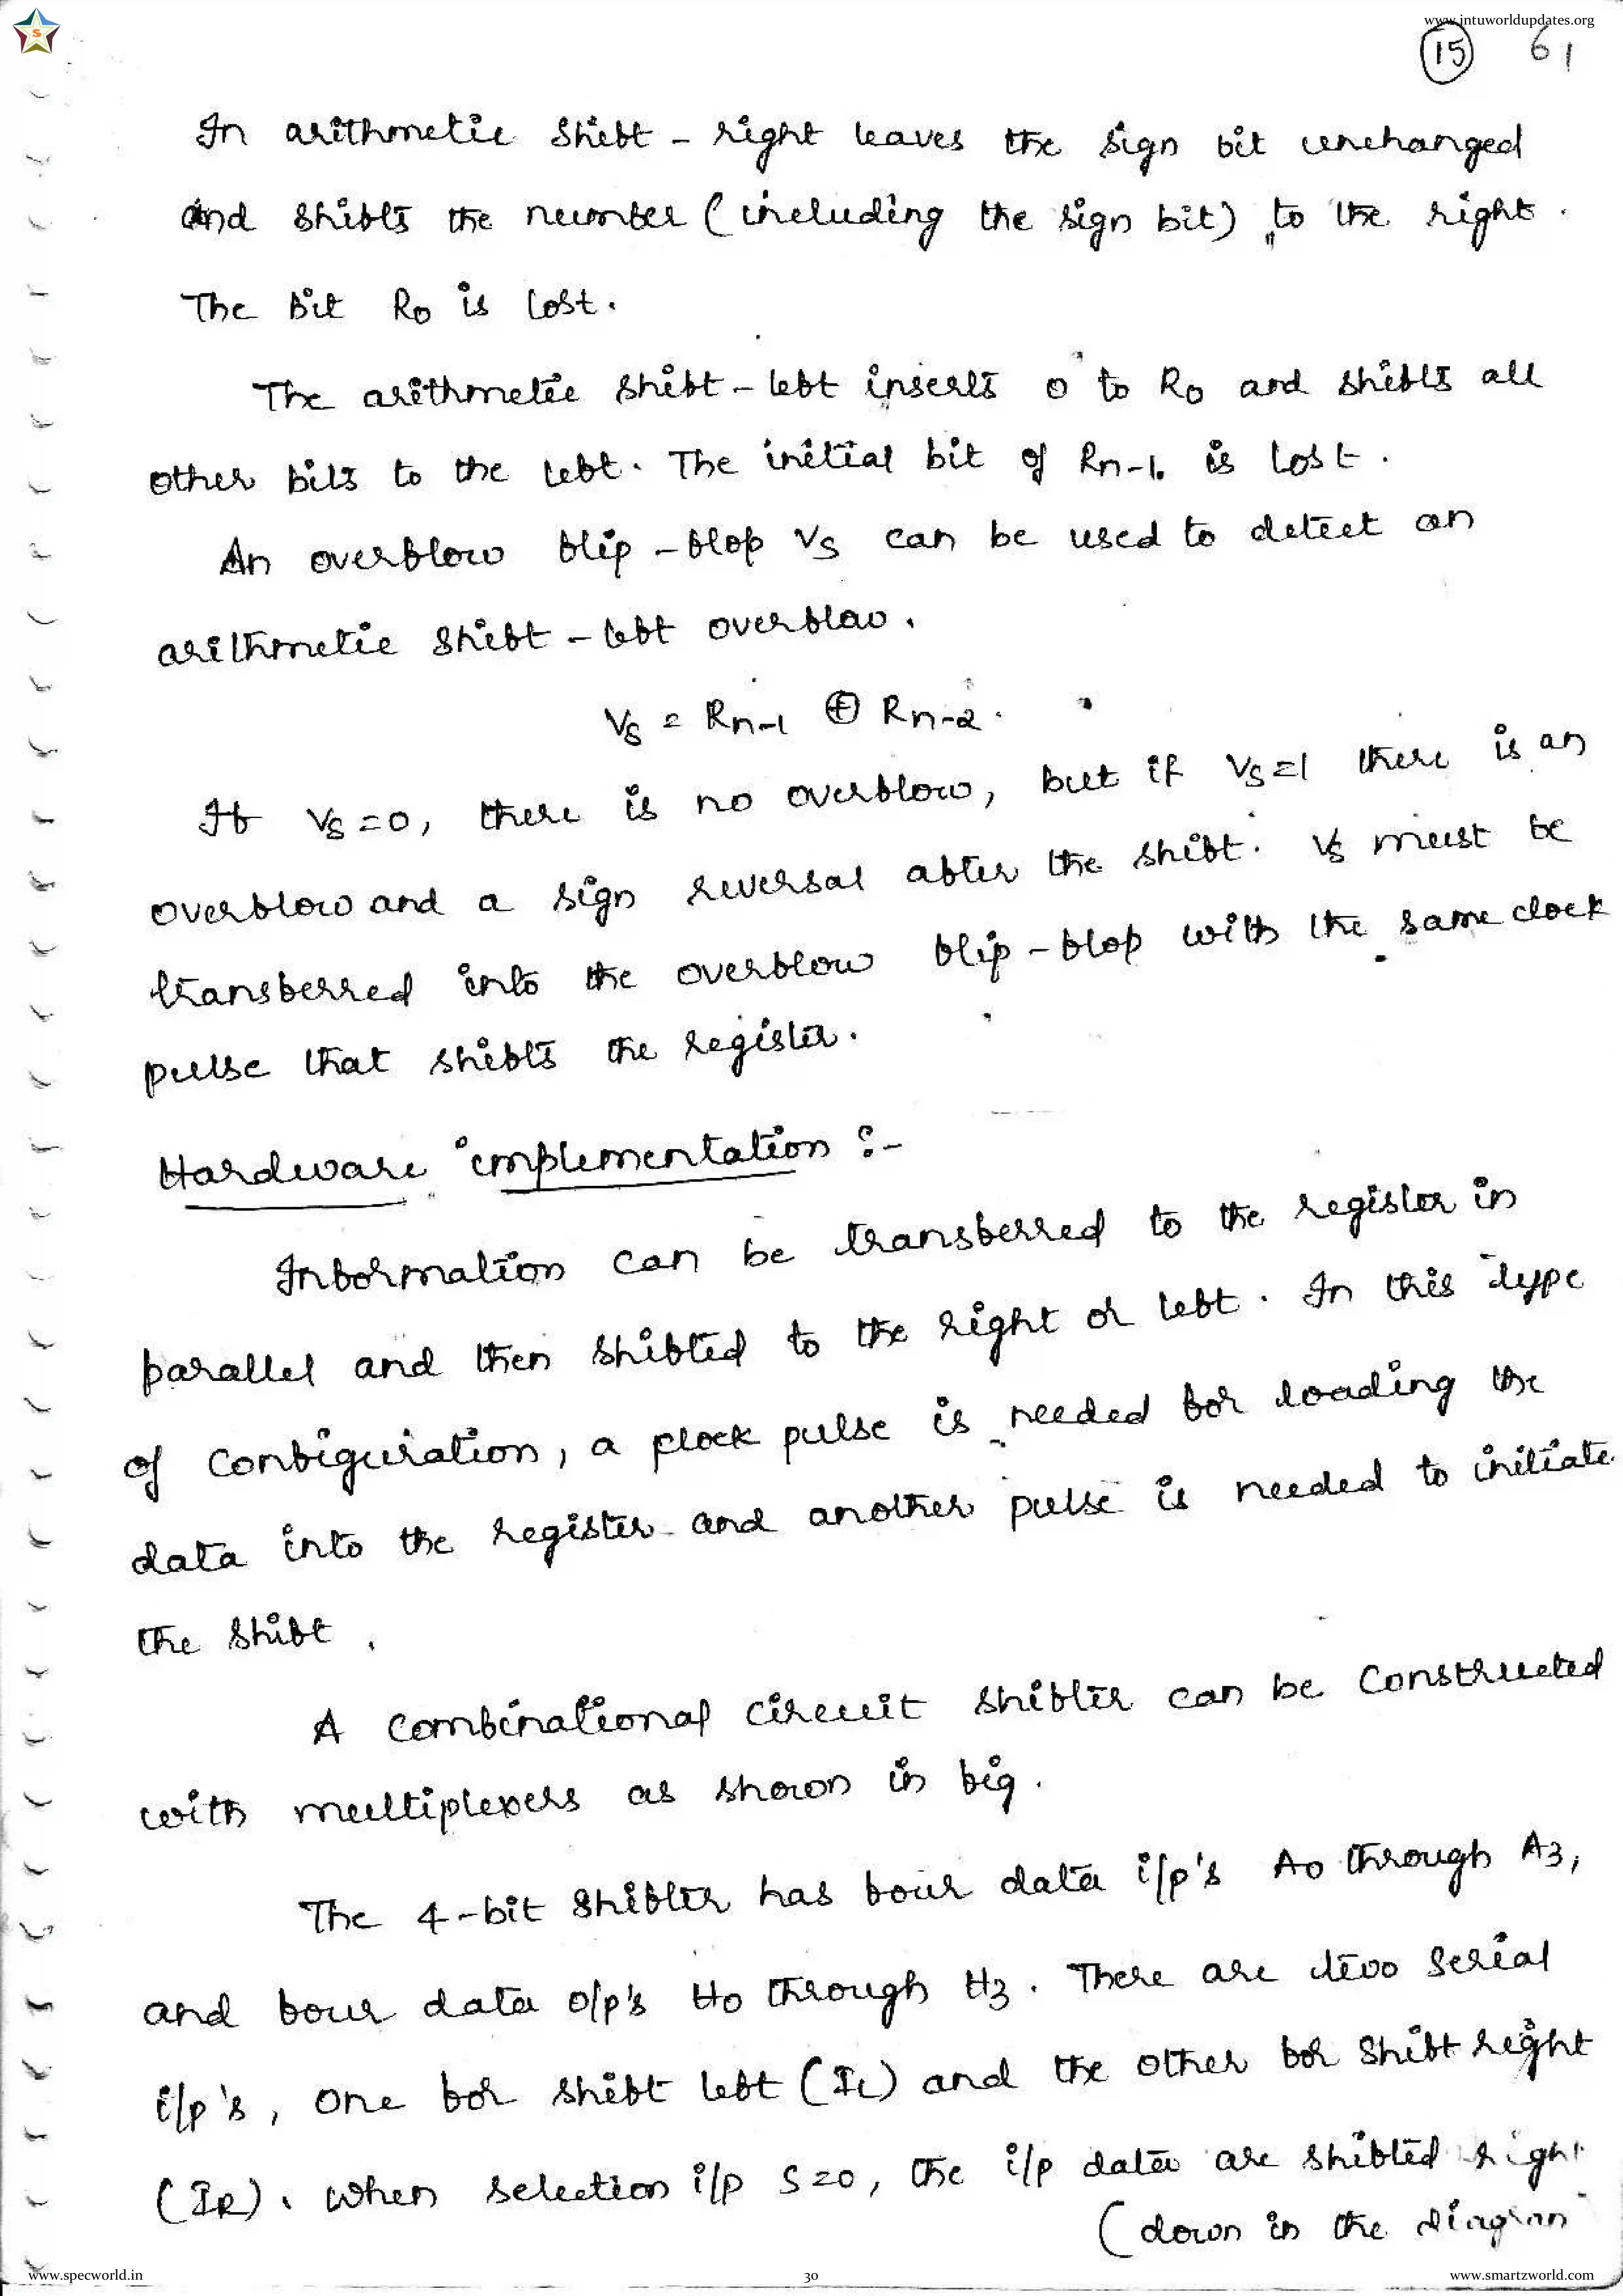 www.jntuworldupdates.org
15 61
In arithmetic shift - right leaves the sign bit unchanged
and shifts the number (including the sign bit) to the right.
The bit R0 is lost.
The arithmetic shift - left inserts 0 to R0 and shifts all
other bits to the left. The initial bit of Rn-1. is lost.
An overflow flip - flop Vs can be used to detect an
arithmetic shift - left overflow.
Vs = Rn-1 ⊕ Rn-2.
If Vs = 0, there is no overflow, but if Vs = 1 there is an
overflow and a sign reversal after the shift. Vs must be
transferred into the overflow flip - flop with the same clock
pulse that shifts the register.
Hardware implementation :-
Information can be transferred to the register in
parallel and then shifted to the right or left. In this type
of configuration, a clock pulse is needed for loading the
data into the register and another pulse is needed to initiate
the shift.
A combinational circuit shifter can be constructed
with multiplexers as shown in fig.
The 4-bit shifter has four data i/p's A0 through A3,
and four data o/p's H0 through H3. There are two serial
i/p's, one for shift left (IL) and the other for shift right
(IR). When selection i/p S=0, the i/p data are shifted right
(down in the diagram
www.specworld.in 30 www.smartzworld.com